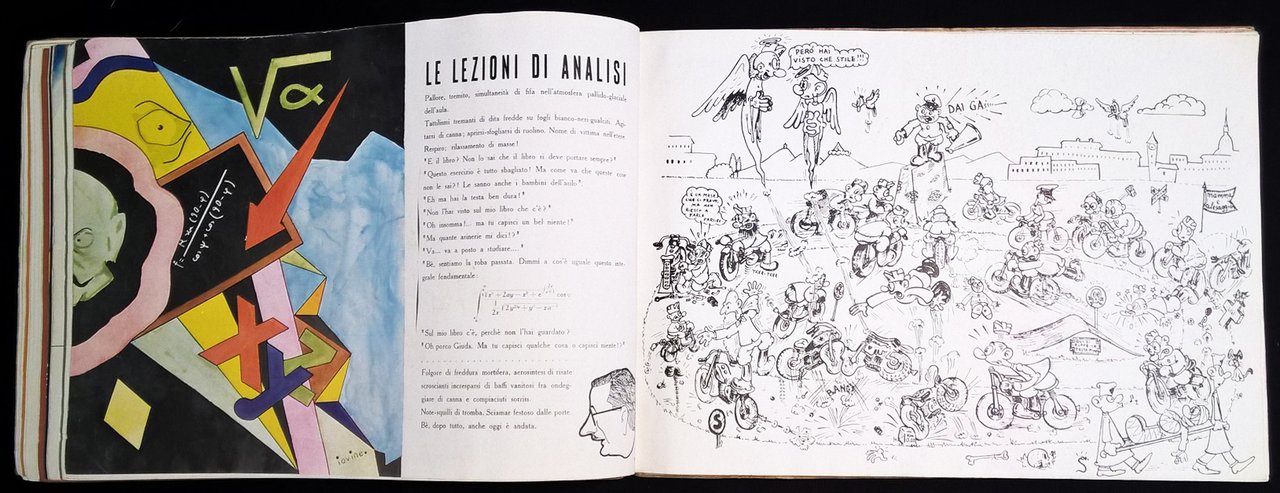 √α
iovine.
LE LEZIONI DI ANALISI
Pallore, tremito, simultaneità di fifa nell'atmosfera pallido-glaciale
dell'aula.
Tattilismi tremanti di dita fredde su fogli bianco-neri gualciti. Agi-
tarsi di canna; aprirsi-sfogliarsi di ruolino. Nome di vittima nell'etere
Respiro; rilassamento di masse!
"E il libro? Non lo sai che il libro si deve portare sempre?"
"Questo esercizio è tutto sbagliato! Ma come va che queste cose
non le sai?! Le sanno anche i bambini dell'asilo"
"Eh ma hai la testa ben dura!"
"Non l'hai visto sul mio libro che c'è?"
"Oh insomma!... ma tu capisci un bel niente!"
"Ma quante asinerie mi dici!?"
"Va... va a posto a studiare...."
"Bè, sentiamo la roba passata. Dimmi a cos'è uguale questo inte-
grale fondamentale:
"Sul mio libro c'è, perchè non l'hai guardato?
"Oh porco Giuda. Ma tu capisci qualche cosa o capisci niente!?"
Folgore di freddura mortifera, aerosintesi di risate
scroscianti incresparsi di baffi vanitosi fra ondeg-
giare di canna e compiaciuti sorrisi.
Note-squilli di tromba. Sciamar festoso dalle porte.
Bè, dopo tutto, anche oggi è andata.
PERÒ HAI
VISTO CHE STILE!!!
DAI GA
È UN MESE
CHE CI PROVO
MA NON
RIESCO A
FARLA
PARTIRE!
BANG!
S